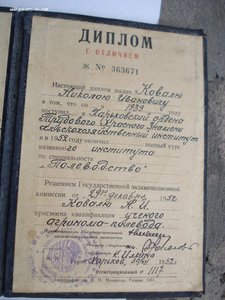 ДИПЛОМ
С ОТЛИЧИЕМ
Ж № 363671
Настоящий диплом выдан Ковалю
Николаю Ивановичу
в том, что он в 1939 году
поступил в Харьковский ордена
Трудового Красного Знамени
сельскохозяйственный институт
и в 1952 году окончил полный курс
названного института
по специальности
"Полеводство"
Решением Государственной экзаменационной
комиссии от 29 декабря 1952 г.
Ковалю Н.И.
присвоена квалификация ученого
агронома-полевода
Председатель Государственной
экзаменационной комиссии
Директор
Секретарь
Харьков 1952 г.
Регистрационный № 1117